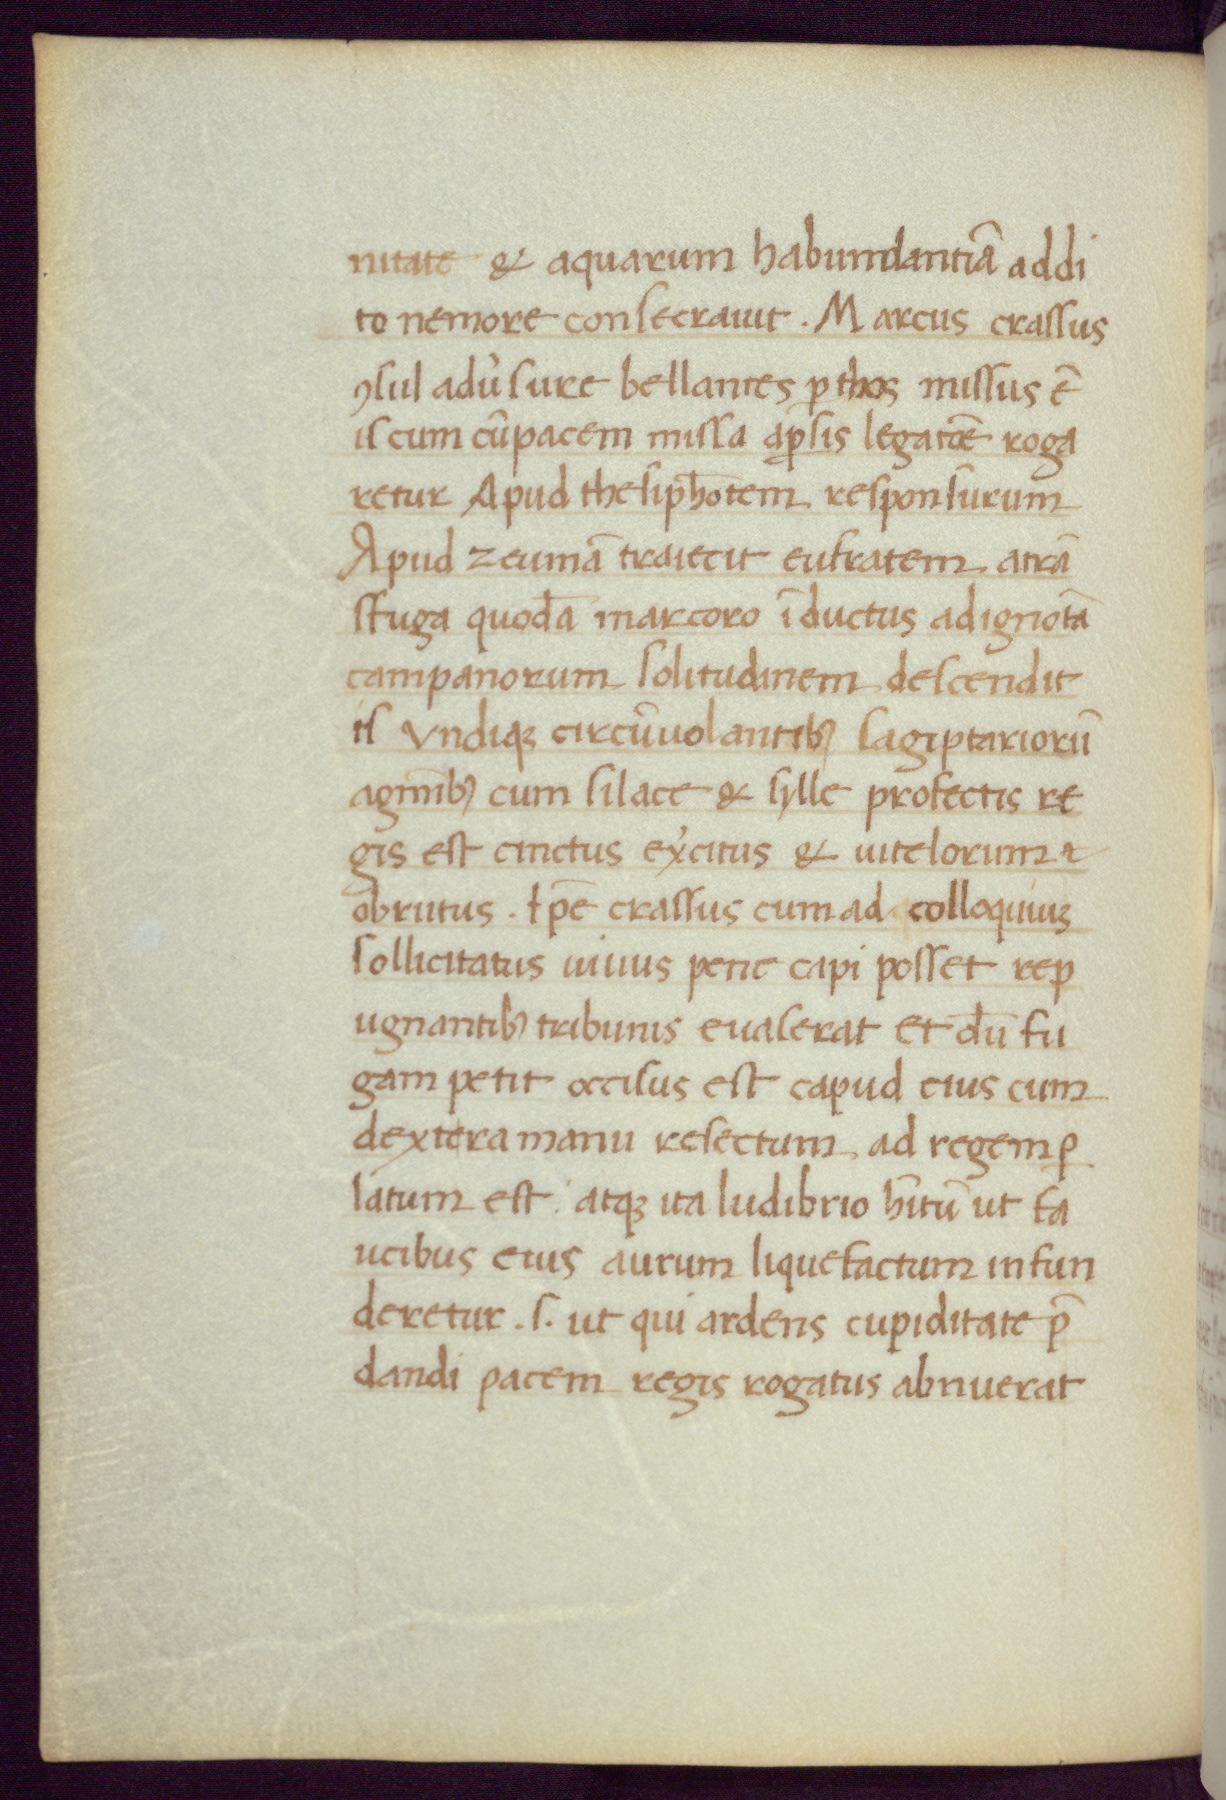 nitate & aquarum habundantiā addi
to nemore consecrauit. Marcus crassus
ꝯsul adu᷑sure bellantes ꝑthos missus ē
is cum cū pacem missa aꝑsis legatōe roga
retur Apud thesiphōtem responsurum
Apud zeumā traiecit eufratem atrā
sfuga quodā marcoro īductus adignotā
campanorum solitudinem descendit
is vndiqꝫ circūuolantibꝰ sagiptariorū
agmībꝰ cum silace & sylle profectis re
gis est cinctus ex̉citus & uitelorum
obrutus. Ip̄e crassus cum ad colloquiuꝫ
sollicitatus uiuus pene capi posset rep
ugnantibꝰ tribunis euaserat et dū fu
gam petit occisus est capud eius cum
dextera manu resectum ad regem ꝑ
latum est. atqꝫ ita ludibrio h̄itū ut fa
ucibus eius aurum liquefactum infun
deretur. s. ut qui ardens cupiditate p̄
dandi pacem regis rogatus abnuerat